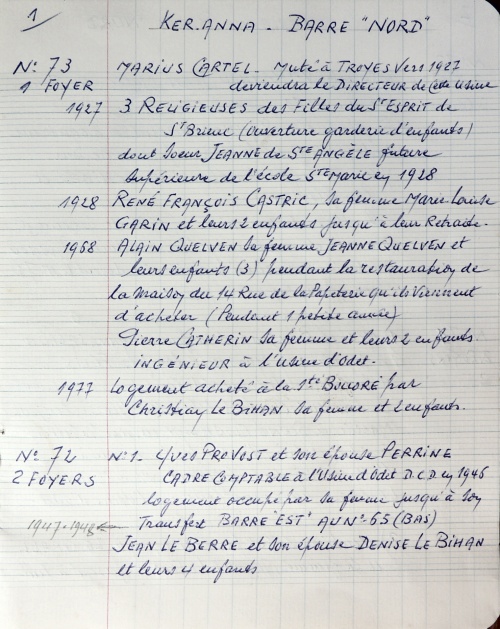 1
KER.ANNA - BARRE "NORD"
N° 73 MARIUS CARTEL - Muté à TROYES vers 1927
1 FOYER deviendra le DIRECTEUR de cette Usine
1927 3 RELIGIEUSES des Filles du St ESPRIT de
St Brieuc (Ouverture garderie d'enfants)
dont Soeur JEANNE de STE ANGÈLE future
Supérieure de l'école Ste Marie en 1928
1928 RENÉ FRANÇOIS CASTRIC, sa femme Marie Louise
GARIN et leurs 2 enfants jusqu'à leur Retraite.
1968 ALAIN QUELVEN sa femme JEANNE QUELVEN et
leurs enfants (3) pendant la restauration de
la maison du 14 Rue de la Papeterie qu'ils viennent
d'acheter (Pendant 1 petite année)
Pierre CATHERIN sa femme et leurs 2 enfants.
INGÉNIEUR à l'usine d'Odet.
1977 Logement acheté à la Sté BOLLORÉ par
Christian LE BIHAN sa femme et 2 enfants.
N° 72 N°1- YVES PROVOST et son épouse PERRINE
2 FOYERS CADRE COMPTABLE à l'Usine d'Odet D.C.D en 1946
logement occupé par sa femme jusqu'à son
1947.1948 ← Transfert BARRE "EST" AU N° 65 (BAS)
JEAN LE BERRE et son épouse DENISE LE BIHAN
et leurs 4 enfants